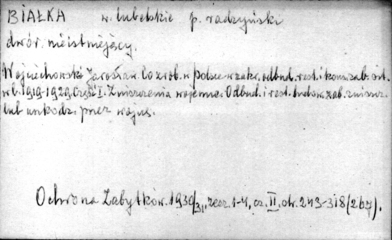 BIAŁKA w. lubelskie p. radzyński
dwór. nieistniejący.
Wojciechowski Jarosław. Co zrob. w Polsce w zakr. odbud. rest. i konserw. zab. szt.
w l. 1919-1929. Część I. Zniszczenia wojenne. Odbud. i rest. budow. zab. zniszcz.
lub uszkodz. przez wojnę.
Ochrona Zabytków. 1930/31, zesz. 1-4, cz. II, str. 243-318 (267).